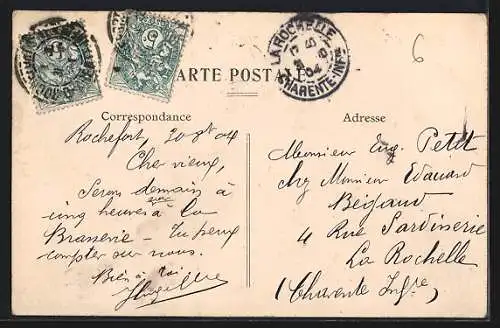 CARTE POSTALE
LA ROCHELLE
CHARENTE-INFRE
6
Correspondance
Rochefort, 04
Cher vieux,
Serons demain à
cinq heures à la
Brasserie – Tu peux
compter sur nous.
Bien à toi
Adresse
Monsieur Eug. Petit
chez Monsieur Edouard
Bégaud
4 Rue Sardinerie
La Rochelle
(Charente Infre)